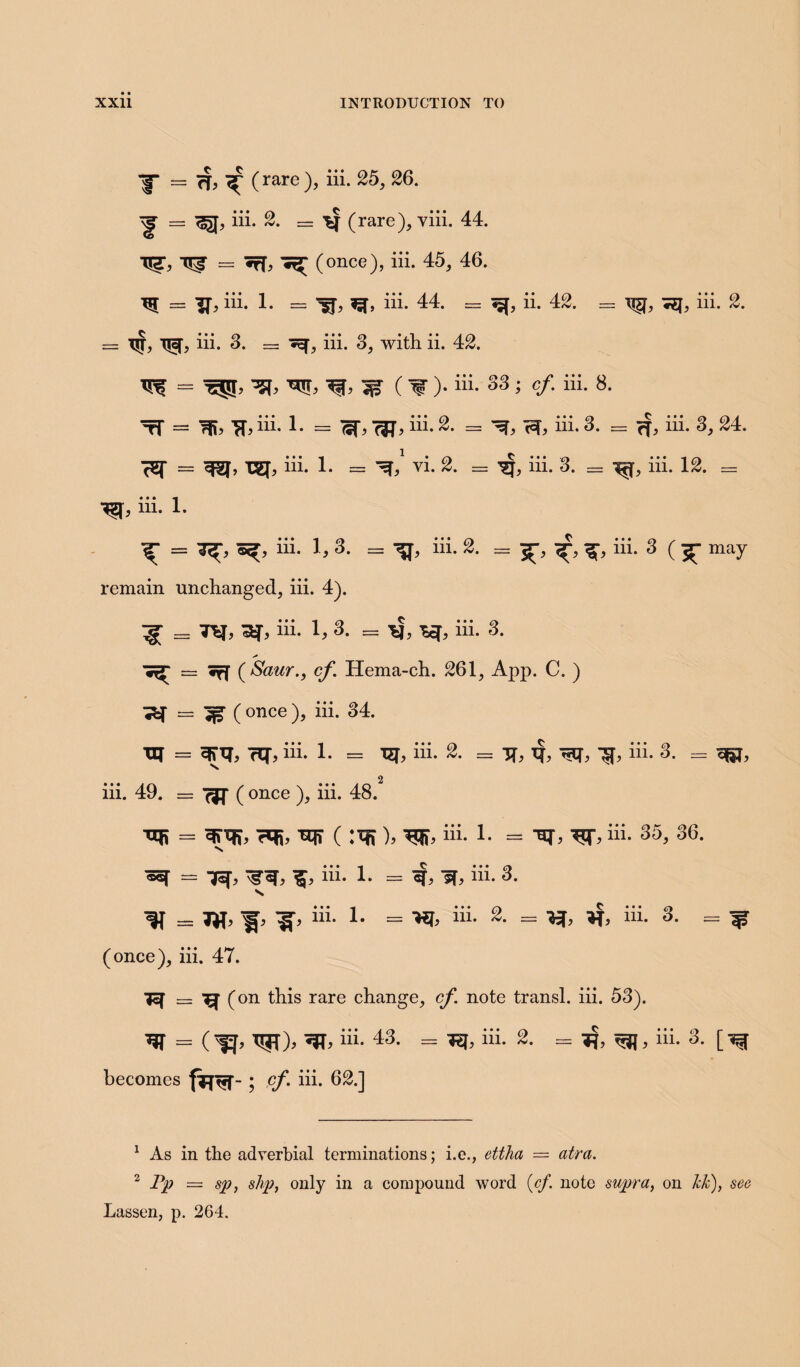 xxii INTRODUCTION TO
ड्ड = र्त, र्द (rare), iii. 25, 26.
ड्ढ = ढ्य, iii. 2. = र्ध (rare), viii. 44.
ण्ट, ण्ड = न्त, न्द (once), iii. 45, 46.
ण्ण = iii. 1. = ज्ञ, म्न, iii. 44. = ii. 42. = ण्य, न्य, iii. 2.
= र्ण, ण्व, iii. 3. = न्व, iii. 3, with ii. 42.
ण्ह = क्ष्ण, श्न, ष्ण, स्न, ह्ण ( ह्न ). iii. 33 ; cf. iii. 8.
त्त = क्त, प्त, iii. 1. = iii. 2. = त्र, त्व, iii. 3. = र्त, iii. 3, 24.
त्थ = क्थ, iii. 1. = त्र,¹ vi. 2. = र्थ, iii. 3. = स्त, iii. 12. =
स्थ, iii. 1.
द्द = ब्द, iii. 1, 3. = द्य, iii. 2. = द्र, र्द, द्व, iii. 3 ( द्र may
remain unchanged, iii. 4).
द्ध = ग्ध, ब्ध, iii. 1, 3. = र्ध, ध्व, iii. 3.
न्द = न्त (Saur., cf. Hema-ch. 261, App. C. )
न्ध = ह्न (once), iii. 34.
प्प = त्प, iii. 1. = प्य, iii. 2. = प्र, र्प, ल्प, प्ल, iii. 3. = क्म,
iii. 49. = त्म (once ), iii. 48.²
प्फ = त्फ, ष्फ ( :फ ), स्फ, iii. 1. = ष्प, स्प, iii. 35, 36.
ब्ब = द्ब, iii. 1. = र्ब, ब्र, iii. 3.
ब्भ = ग्भ, द्भ, iii. 1. = भ्य, iii. 2. = र्भ, भ्र, iii. 3. = ह्व
(once), iii. 47.
म्ब = म्र (on this rare change, cf. note transl. iii. 53).
म्म = (ङ्म, ण्म), न्म, iii. 43. = म्य, iii. 2. = र्म, ल्म, iii. 3. [म्ल
becomes मिल- ; cf. iii. 62.]
¹ As in the adverbial terminations; i.e., ettha = atra.
² Pp = sp, shp, only in a compound word (cf. note supra, on kk), see
Lassen, p. 264.